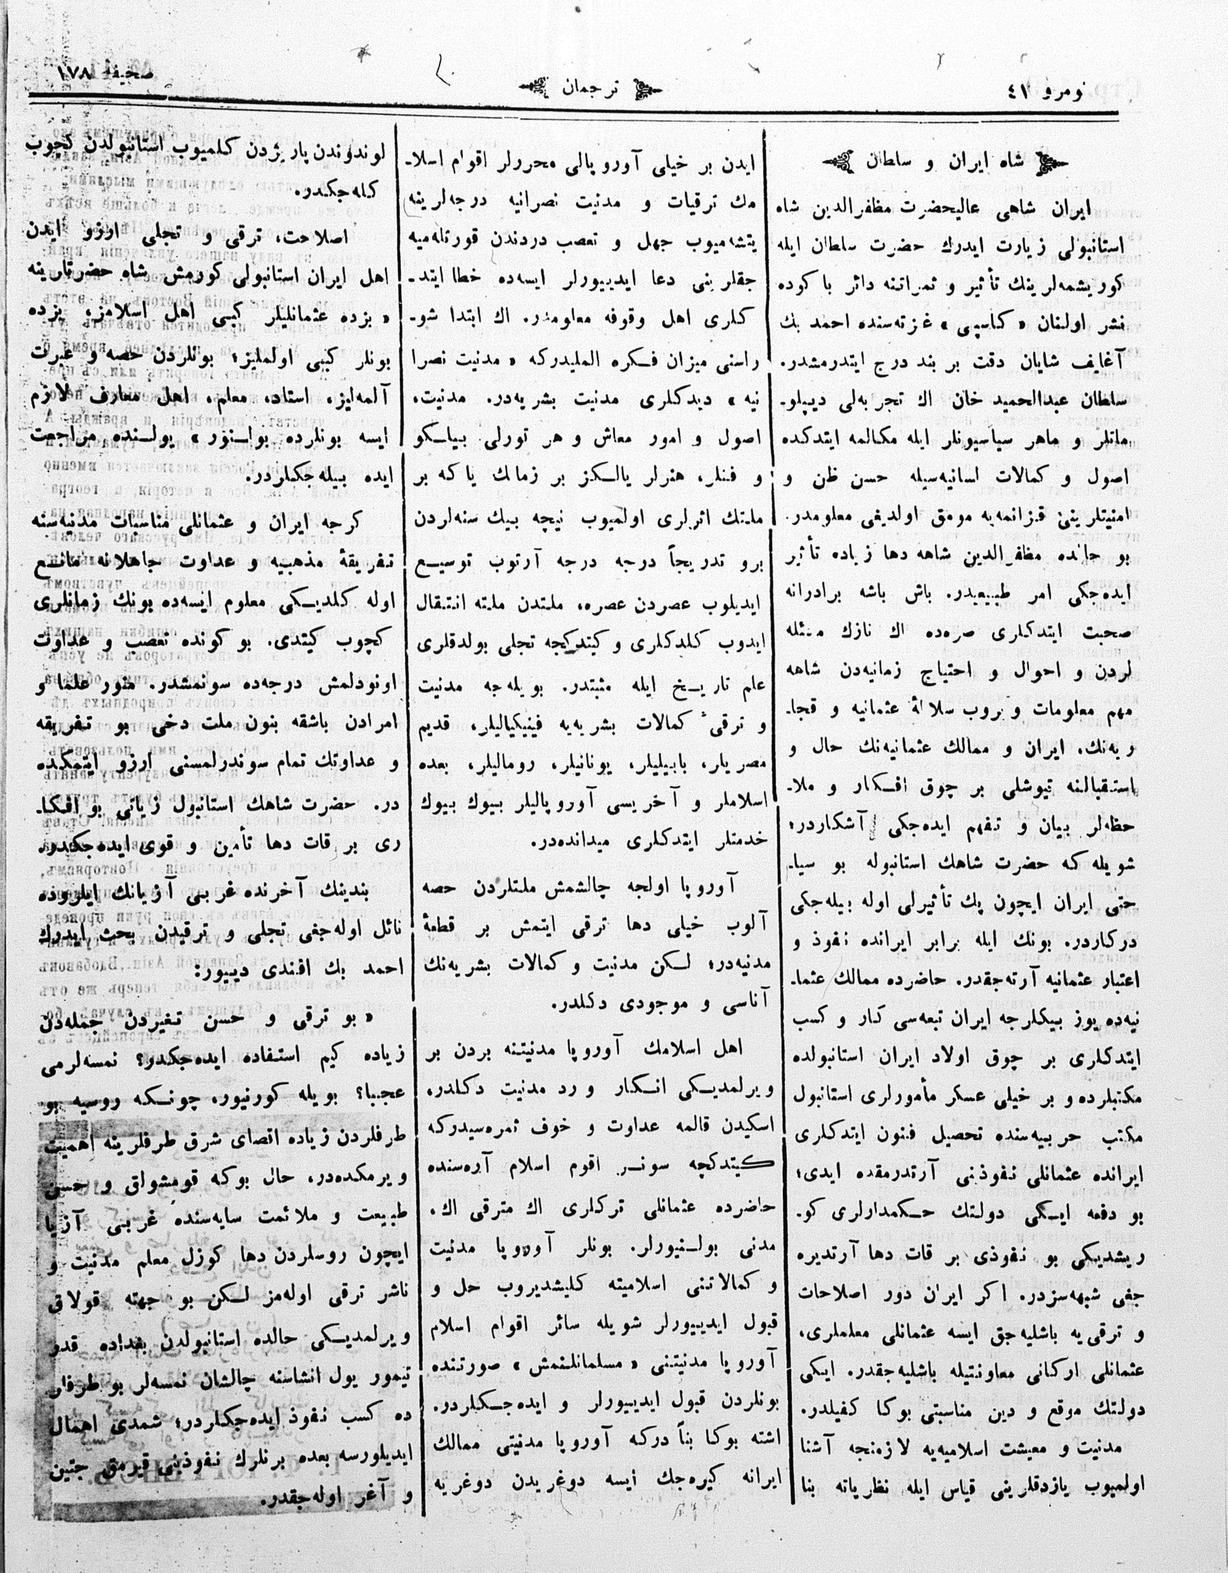 نومرو ٤١
ترجمان
صحیفه ١٧٨
شاه ایران و سلطان
ایران شاهی عالیحضرت مظفرالدین شاه
استانبولی زیارت ایدرك حضرت سلطان ایله
کوریشمه‌لرینك تأثیر و ثمراتنه دائر باکوده
نشر اولنان « کاسپی » غزته‌سنده احمد بك
آغایف شایان دقت بر بند درج ایتدرمشدر.
سلطان عبدالحمید خان اك تجربه‌لی دیپلو‍ـ
ماتلر و ماهر سیاسیونلر ایله مکالمه ایتدکده
اصول و کمالات لسانیه‌سیله حسن ظن و
امنیتلرینی قزانمه‌یه موفق اولدیغی معلومدر.
بو جانده مظفرالدین شاهه دها زیاده تأثیر
ایده‌جکی امر طبیعیدر. باش باشه برادرانه
صحبت ایتدکلری صره‌ده اك نازك مسئله
لردن و احوال و احتیاج زمانیه‌دن شاهه
مهم معلومات و یروب سلالۀ عثمانیه و قجا‍ـ
ریه‌نك، ایران و ممالك عثمانیه‌نك حال و
استقبالنه تیوشلی بر چوق افکار و ملا‍ـ
حظه‌لر بیان و تفهم ایده‌جکی آشکاردر؛
شویله که حضرت شاهك استانبوله بو سیا‍ـ
حتی ایران ایچون پك تأثیرلی اوله بیله‌جکی
درکاردر. بونك ایله برابر ایرانده نفوذ و
اعتبار عثمانیه آرته‌جقدر. حاضرده ممالك عثما‍ـ
نیه‌ده یوز بیکلرجه ایران تبعه‌سی کار و کسب
ایتدکلری بر چوق اولاد ایران استانبولده
مکتبلرده و بر خیلی عسکر مأمورلری استانبول
مکتب حربیه‌سنده تحصیل فنون ایتدکلری
ایرانده عثمانلی نفوذینی آرتدرمقده ایدی؛
بو دفعه ایکی دولتك حکمدارلری کو‍ـ
ریشدیکی بو نفوذی بر قات دها آرتدیره
جغی شبهه‌سزدر. اکر ایران دور اصلاحات
و ترقی‌یه باشلیه‌جق ایسه عثمانلی معلملری،
عثمانلی ارکانی معاونتیله باشلیه‌جقدر. ایکی
دولتك موقع و دین مناسبتی بوکا کفیلدر.
مدنیت و معیشت اسلامیه‌یه لازمنجه آشنا
اولمیوب یازدقلرینی قیاس ایله نظریاته بنا
ایدن بر خیلی آوروپالی محررلر اقوام اسلا‍ـ
مك ترقیات و مدنیت نصرانیه درجه‌لرینه
یتشه‌میوب جهل و تعصب دردندن قورتله‌میه
جقلرینی دعا ایدیپورلر ایسه‌ده خطا ایتد‍ـ
کلری اهل وقوفه معلومدر. اك ابتدا شو‍ـ
راسنی میزان فکره المليدرکه « مدنیت نصرا
نیه » دیدکلری مدنیت بشریه‌در. مدنیت،
اصول و امور معاش و هر تورلی بیلکو
و فنلر، هنرلر یالکز بر زمانك یاکه بر
ملتك اثرلری اولمیوب نیچه بیك سنه‌لردن
برو تدریجاً درجه درجه آرتوب توسیع
ایدیلوب عصردن عصره، ملتدن ملته انتقال
ایدوب کلدکلری و کیتدکجه تجلی بولدقلری
علم تاریخ ایله مثبتدر. بویله‌جه مدنیت
و ترقئ کمالات بشریه‌یه فینیکیالیلر، قدیم
مصریلر، بابیلیلر، یونانیلر، رومالیلر، بعده
اسلاملر و آخریسی آوروپالیلر بیوك بیوك
خدمتلر ایتدکلری میدانده‌در.
آوروپا اولجه چالشمش ملتلردن حصه
آلوب خیلی دها ترقی ایتمش بر قطعۀ
مدنیه‌در؛ لکن مدنیت و کمالات بشریه‌نك
آناسی و موجودی دکلدر.
اهل اسلامك آوروپا مدنیتنه بردن بر
ویرلمدیکی انکار و رد مدنیت دکلدر،
اسکیدن قالمه عداوت و خوف ثمره‌سیدرکه
کیتدکچه سونر اقوم اسلام آره‌سنده
حاضرده عثمانلی ترکلری اك مترقی اك،
مدنی بولنیورلر. بونلر آوروپا مدنیت
و کمالاتنی اسلامیته کلیشدیروب حل و
قبول ایدیپورلر شویله سائر اقوام اسلام
آوروپا مدنیتنی « مسلمانلشمش » صورتنده
بونلردن قبول ایدیپورلر و ایده‌جکلردر.
اشته بوکا بناً درکه آوروپا مدنیتی ممالك
ایرانه کیره‌جك ایسه دوغریدن دوغریه
لوندوندن پاریژدن کلمیوب استانبولدن کچوب
کله‌جکدر.
اصلاحت، ترقی و تجلی ارزو ایدن
اهل ایران استانبولی کورمش شاه حضرتلرینه
« بزده عثمانلیلر کبی اهل اسلامز، بزده
بونلر کبی اولملیز؛ بونلردن حصه و عبرت
آلمه‌لیز، استاد، معلم، اهل معارف لازم
ایسه بونلرده بولنور » یولنده مراجعت
ایده بیله‌جکلردر.
کرجه ایران و عثمانلی مناسبات مدنیه‌سنه
تفریقۀ مذهبیه و عداوت جاهلانه مانع
اوله کلدیکی معلوم ایسه‌ده بونك زمانلری
کچوب کیتدی. بو کونده تعصب و عداوت
اونودلمش درجه‌ده سونمشدر. منور علما و
امرادن باشقه بتون ملت دخی بو تفریقه
و عداوتك تمام سوندرلمسنی ارزو ایتمکده
در. حضرت شاهك استانبول زیاتی بو افکا‍ـ
ری بر قات دها تأمین و قوی ایده‌جکدر.
بندینك آخرنده غربی آزیانك ایلروده
نائل اوله‌جغی تجلی و ترقیدن بحث ایدرك
احمد بك افندی دیپور:
« بو ترقی و حسن تغیردن جمله‌دن
زیاده کیم استفاده ایده‌جکدر؟ نمسه‌لرمی
عجبا؟ بویله کورنیور، چونکه روسیه بو
طرفلردن زیاده اقصای شرق طرفلرینه اهمیت
ویرمکده‌در، حال بوکه قومشواق و حسن
طبیعت و ملائمت سایه‌سنده غربی آزیا
ایچون روسلردن دها کوزل معلم مدنیت و
ناشر ترقی اوله‌مز لکن بو جهته قولاق
ویرلمدیکی حالده استانبولدن بغداده قدر
تیمور یول انشاسنه چالشان نمسه‌لر بو طرفلر
ده کسب نفوذ ایده‌جکلردر؛ شمدی اهمال
ایدیلورسه بعده برنلرك نفوذینی قیرمق چتین
و آغر اوله‌جقدر.